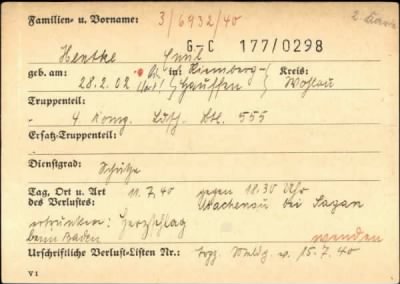 Familien- u. Vorname: 3/6932/40
2. Karte
G-C 177/0298
Hentke Emil
geb. am: 28.2.02 in: Riemberg- Kreis:
Hauffen Wohlau
Truppenteil:
4. Komp. Ldsch. Btl. 555
Ersatz-Truppenteil:
Dienstgrad: Schütze
Tag, Ort u. Art 11.7.40 gegen 18.30 Uhr
des Verlustes: bei Sagan
ertrunken: Herzschlag
beim Baden wenden
Urschriftliche Verlust-Listen Nr.: v. 15.7.40
V 1